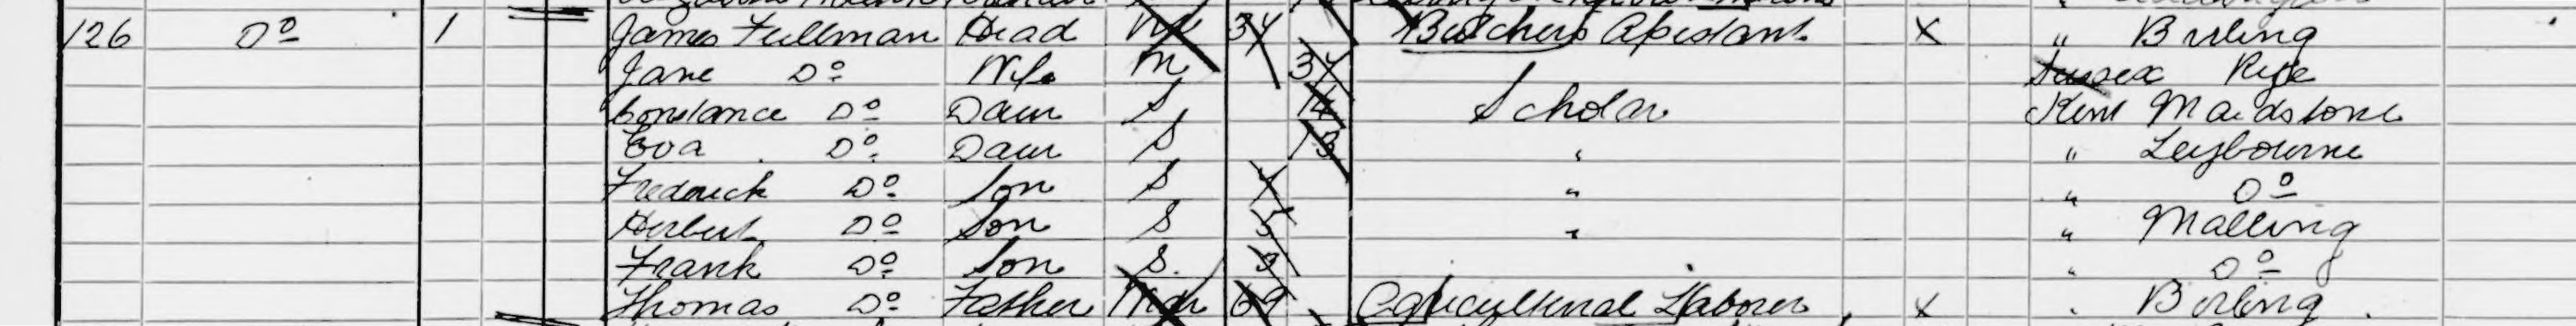 126 Do 1 James Fullman Head M 34 Butchers Assistant X " Birling
Jane Do Wife M 34 Sussex Rye
Constance Do Daur S 14 Scholar Kent Maidstone
Eva Do Daur S 13 " " Leybourne
Fredrick Do Son S 7 " " Do
Herbert Do Son S 5 " " Malling
Frank Do Son S. 3 " Do
Thomas Do Father Widr 69 Agricultural Laborer X " Birling